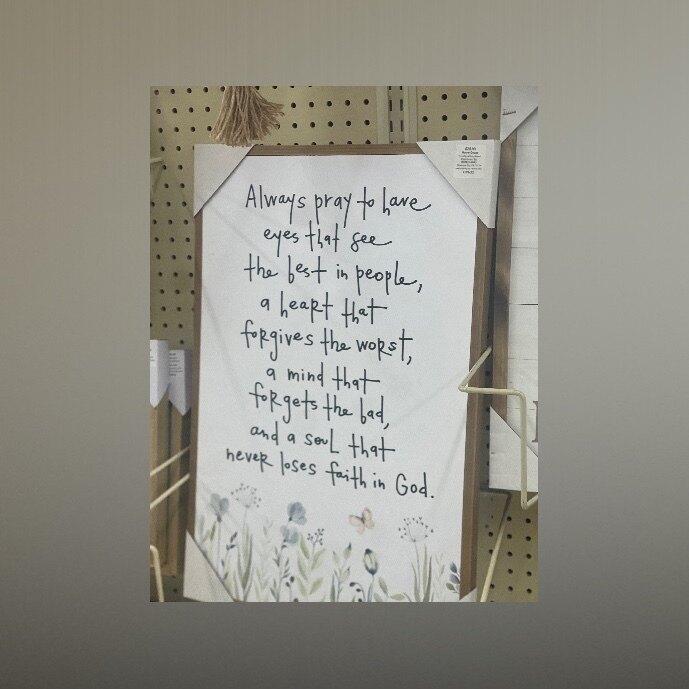 Always pray to have
eyes that see
the best in people,
a heart that
forgives the worst,
a mind that
forgets the bad,
and a soul that
never loses faith in God.